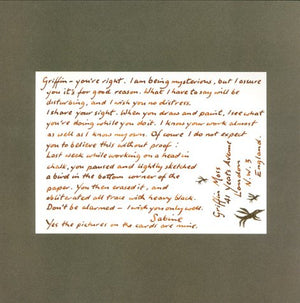 Griffin – you're right. I am being mysterious, but I assure
you it's for good reason. What I have to say will be
disturbing, and I wish you no distress.
I share your sight. When you draw and paint, I see what
you're doing while you do it. I know your work almost
as well as I know my own. Of course I do not expect
you to believe this without proof:
Last week while working on a head in
chalk, you paused and lightly sketched
a bird in the bottom corner of the
paper. You then erased it, and
obliterated all trace with heavy black.
Don't be alarmed – I wish you only well.
Sabine
Yes the pictures on the cards are mine.
Griffin Moss
41 Yeats Avenue
London
N.W.3
England.